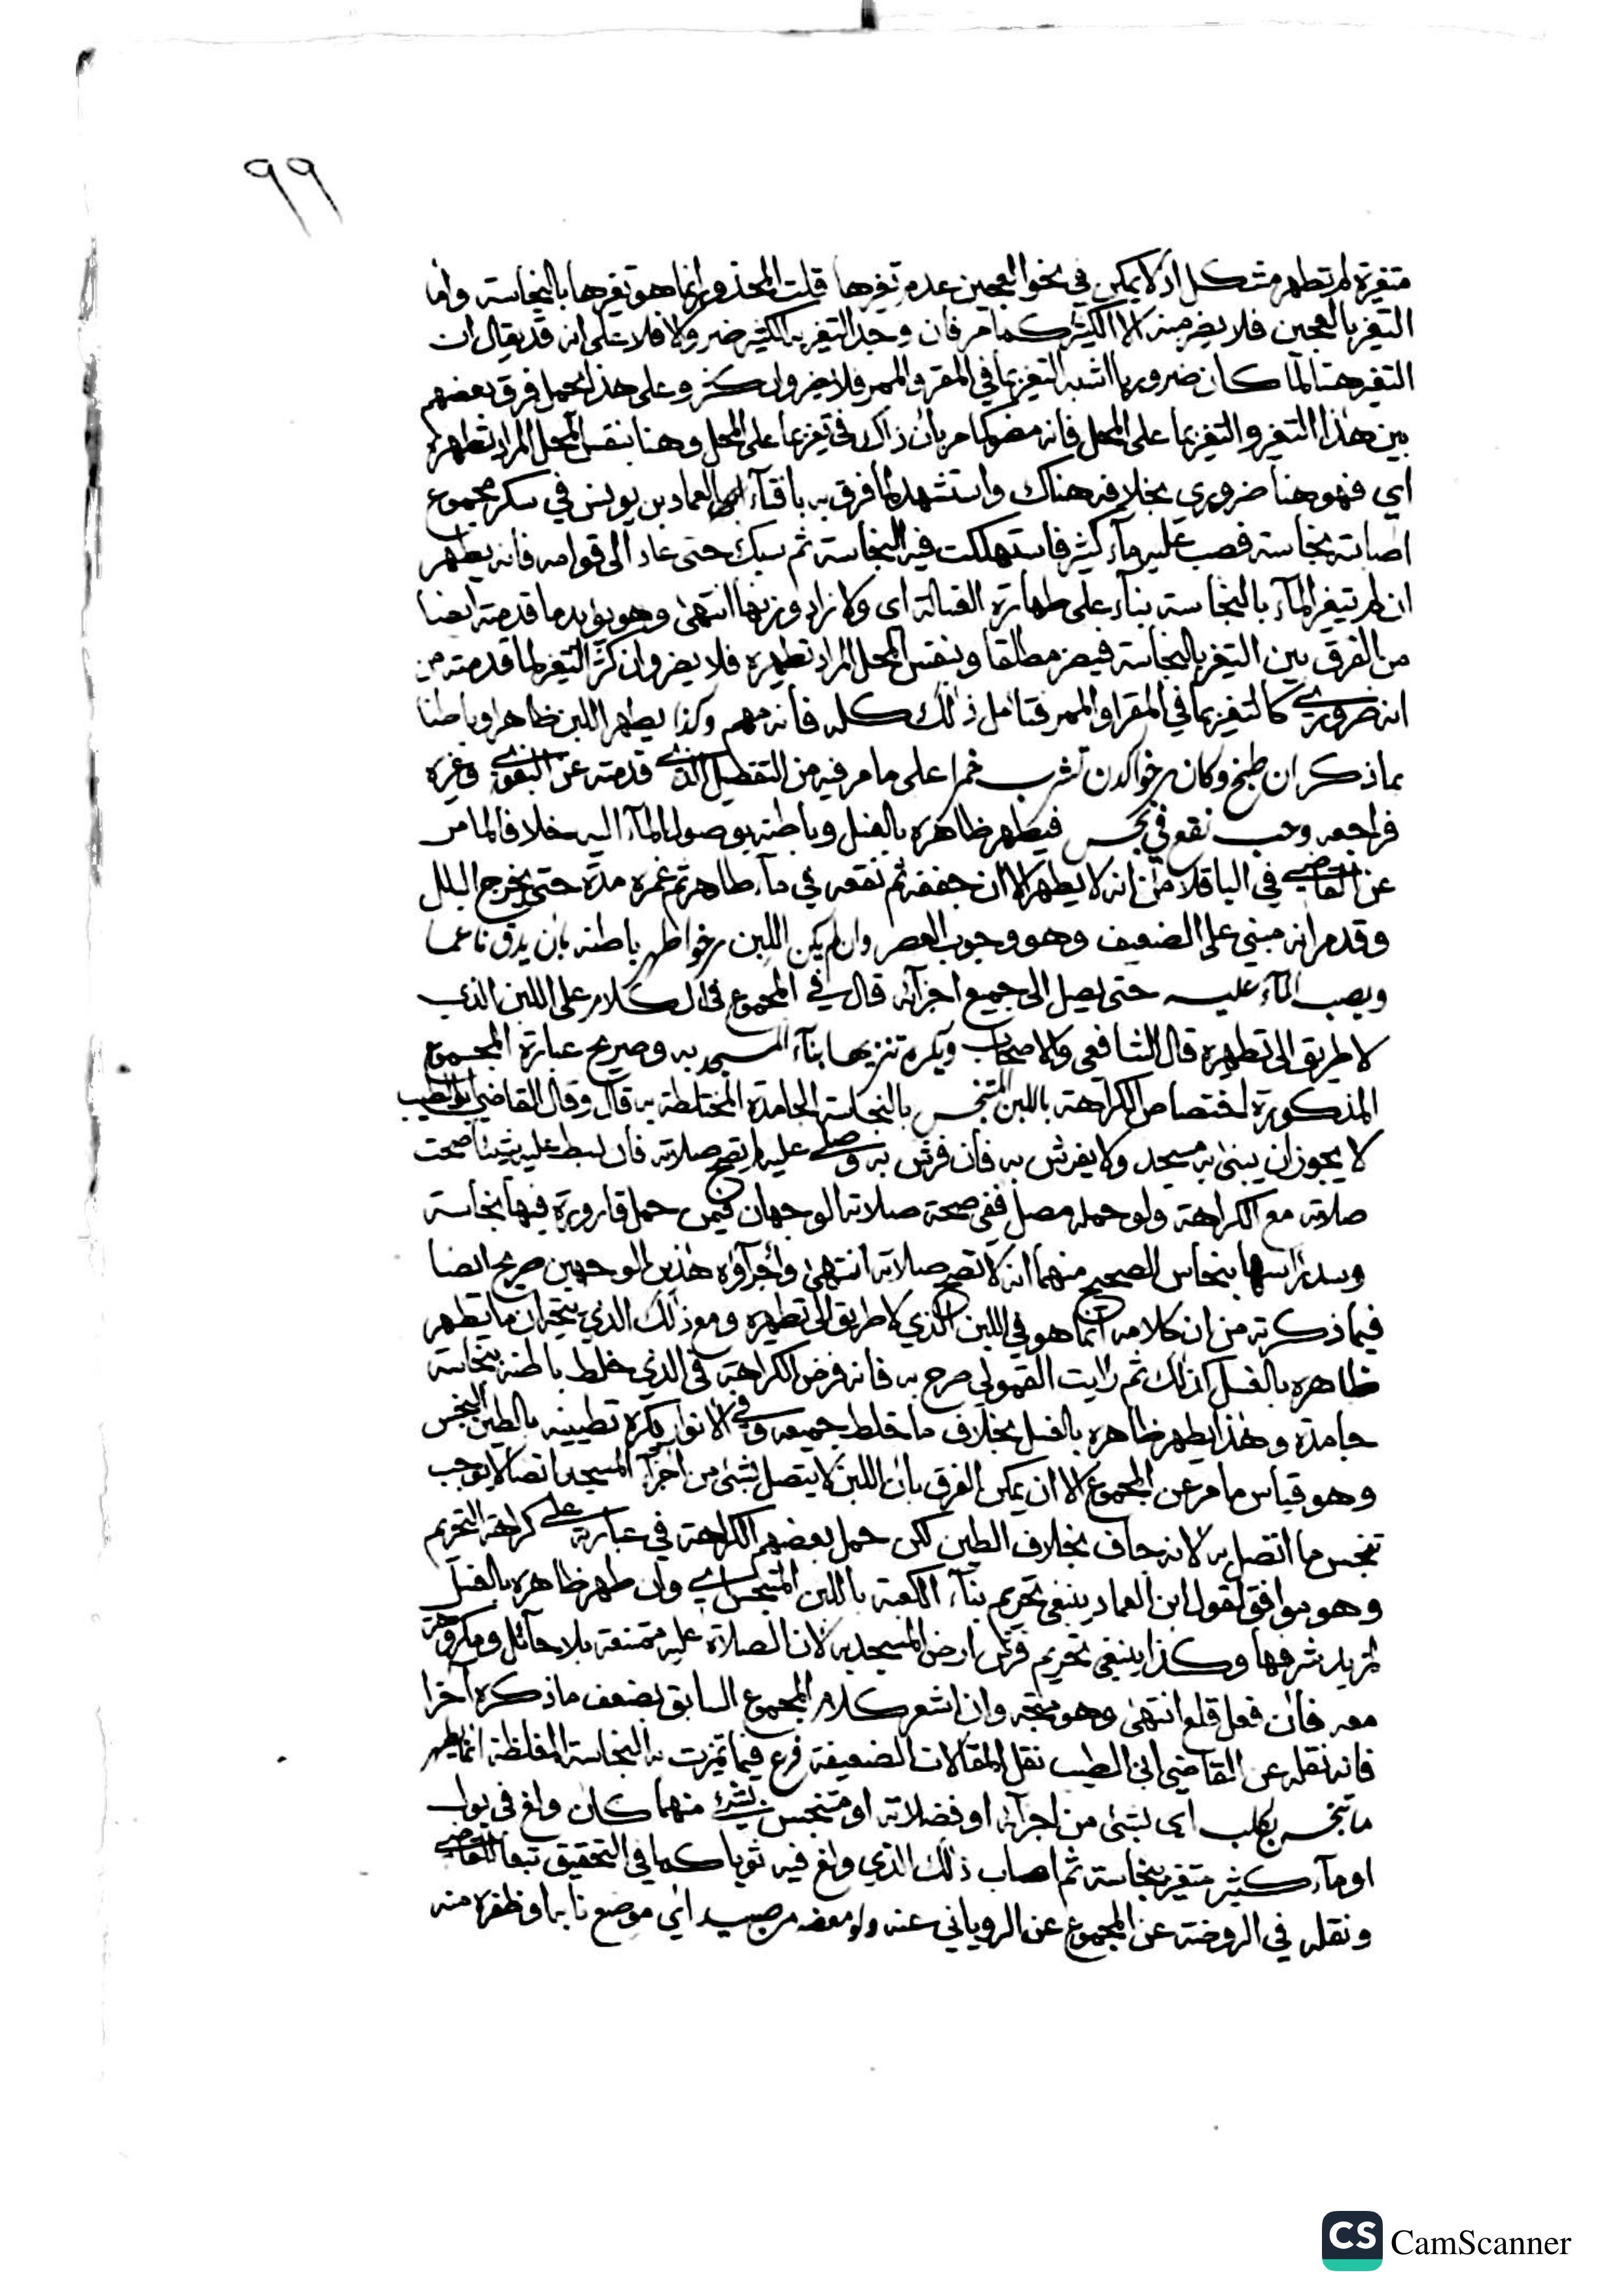 ٩٩
متغيرة لم تطهر مشكل اذ لا يمكن في نحو العجين عدم تغيرها قلت المحذور انما هو تغيرها بالنجاسة واما
التغير بالعجين فلا يضر منه الا الكثير كما مر فان وجد التغير به الكثير ضر والا فلا على انه قد يقال ان
التغير هنا لما كان ضروريا اشبه التغير بما في المقر والممر فلا يضر وان كثر وعلى هذا يحمل فرق بعضهم
بين هذا التغير والتغير بما على المحل فانه مضر كما مر بان ذاك في تغير بما على المحل وهنا بنفس المحل المراد تطهيره
اي فهو هنا ضروري بخلافه هناك واستشهد لما فرق به بافتاء العماد بن يونس في سكر مجموع
اصابته نجاسة فصب عليه ماء كثير فاستهلكت فيه النجاسة ثم سبك حتى عاد الى قوامه فانه يطهر
ان لم يتغير الماء بالنجاسة بناء على طهارة الغسالة اي ولا زاد وزنها انتهى وهو يؤيد ما قدمته ايضا
من الفرق بين التغير بالنجاسة فيضر مطلقا وبنفس المحل المراد تطهيره فلا يضر وان كثر التغير لما قدمته من
انه ضروري كالتغير بما في المقر او الممر فتامل ذلك كله فانه مهم وكذا يطهر اللبن ظاهرا وباطنا
بما ذكر ان طبخ وكان رخوا كدن تشرب خمرا على ما مر فيه من التفصيل الذي قدمته عن البغوي وغيره
فراجعه وحب نقع في نجس فيطهر ظاهره بالغسل وباطنه بوصول الماء اليه خلافا لما مر
عن القاضي في الباقلا من انه لا يطهر الا ان جففه ثم نقعه في ماء طاهر ثم غمره مدة حتى يخرج البلل
وقدم انه مبني على الضعيف وهو وجوب العصر وان لم يكن اللبن رخوا طهر باطنه بان يدق ناعما
ويصب الماء عليه حتى يصل الى جميع اجزائه قال في المجموع في الكلام على اللبن الذي
لا طريق الى تطهيره قال الشافعي والاصحاب ويكره تنزيها بناء المسجد به وصريح عبارة المجموع
المذكورة اختصاص الكراهة باللبن المتنجس بالنجاسة الجامدة المختلطة به قال وقال القاضي ابو الطيب
لا يجوز ان يبنى به مسجد ولا يفرش به فان فرش به وصلى عليه لم تصح صلاته فان بسط عليه شيئا صحت
صلاته مع الكراهة ولو حمله مصل ففي صحة صلاته الوجهان فيمن حمل قارورة فيها نجاسة
وسد راسها بنحاس الصحيح منهما انه لا تصح صلاته انتهى واجراؤه هذين الوجهين صريح ايضا
فيما ذكرته من ان كلامه انما هو في اللبن الذي لا طريق الى تطهيره ومع ذلك الذي يتجه ان ما تطهر
ظاهره بالغسل كذلك ثم رايت القمولي صرح به فانه فرض الكراهة في الذي خلط باطنه بنجاسة
جامدة وهذا يطهر ظاهره بالغسل بخلاف ما خلط جميعه وفي الانوار يكره تطيينه بالطين النجس
وهو قياس ما مر عن المجموع الا ان يمكن الفرق بان اللبن لا يتصل بشئ من اجزاء المسجد اتصالا يوجب
تنجس ما اتصل به لانه جاف بخلاف الطين لكن حمل بعضهم الكراهة في عبارته على كراهة التحريم
وهو موافق لقول ابن العماد ينبغي تحريم بناء الكعبة باللبن المتنجس اي وان طهر ظاهره بالغسل
لمزيد شرفها وكذا ينبغي تحريم فرش ارض المسجد به لان الصلاة عليه ممتنعة بلا حائل ومكروهة
معه فان فعل قلع انتهى وهو متجه وان اشعر كلام المجموع السابق بضعف ما ذكره آخرا
فانه نقله عن القاضي ابي الطيب نقل المقالات الضعيفة فرع فيما تميزت به النجاسة المغلظة انما يطهر
ما تنجس بكلب اي بشئ من اجزائه او فضلاته او متنجس بشئ منهما كان ولغ في بول
او ماء كثير متغير بنجاسة ثم اصاب ذلك الذي ولغ فيه ثوبا كما في التحقيق تبعا للقاضي
ونقله في الروضة عن المجموع عن الروياني عنه ولو معضه من صيد اي موضع نابه او ظفره منه
CS CamScanner